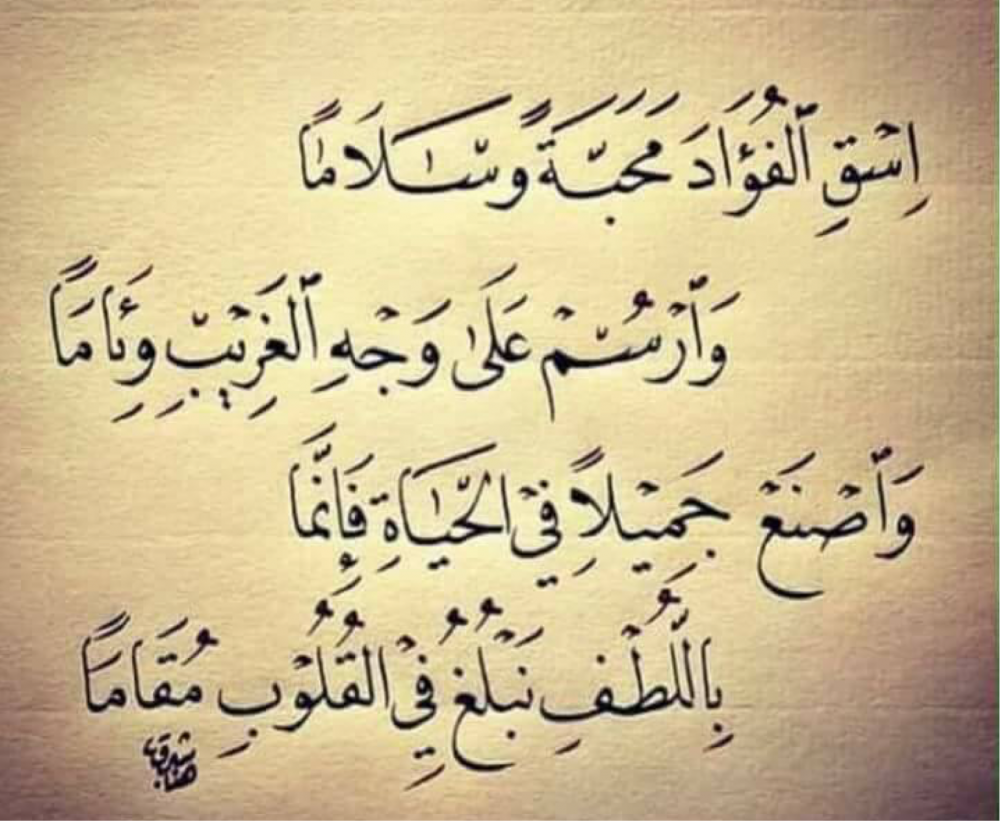 اِسْقِ ٱلْفُؤَادَ مَحَبَّةً وَسَلَامًا
وَٱرْسُمْ عَلَىٰ وَجْهِ ٱلْغَرِيبِ وِئَامًا
وَٱصْنَعْ جَمِيْلًا فِي الْحَيَاةِ فَإِنَّمَا
بِاللُّطْفِ نَبْلُغُ فِي الْقُلُوْبِ مُقَامًا